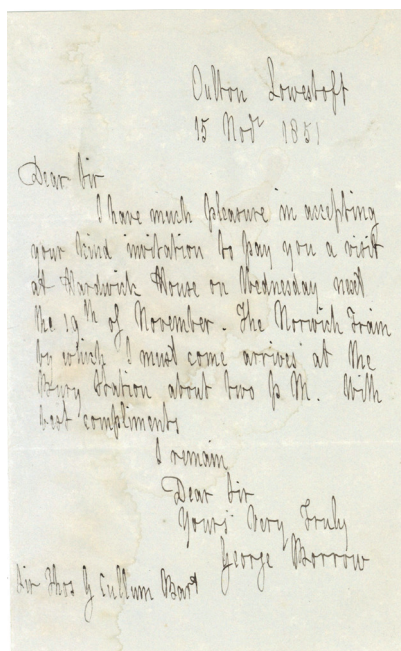 Oulton Lowestoft
15 Novr 1851
Dear Sir
I have much pleasure in accepting
your kind invitation to pay you a visit
at Hardwick House on Wednesday next
the 19th of November. The Norwich Train
by which I must come arrives at the
Bury Station about two p M. With
best compliments
I remain
Dear Sir
Yours Very Truly
George Borrow
Sir Thos G Cullum Bart